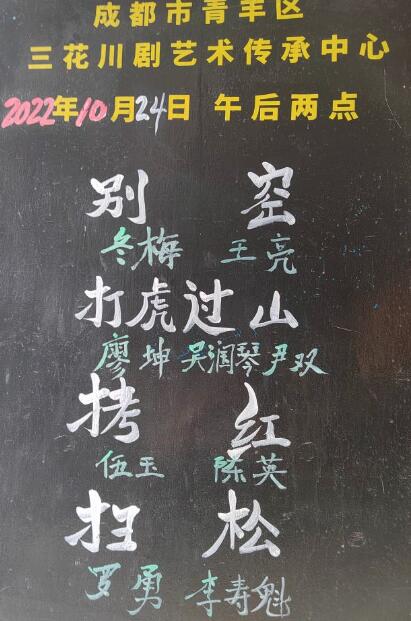 成都市青羊区
三花川剧艺术传承中心
2022年10月24日 午后两点
别 窑
冬梅 王亮
打虎过山
廖坤 吴润琴 尹双
拷 红
伍玉 陈英
扫 松
罗勇 李寿魁